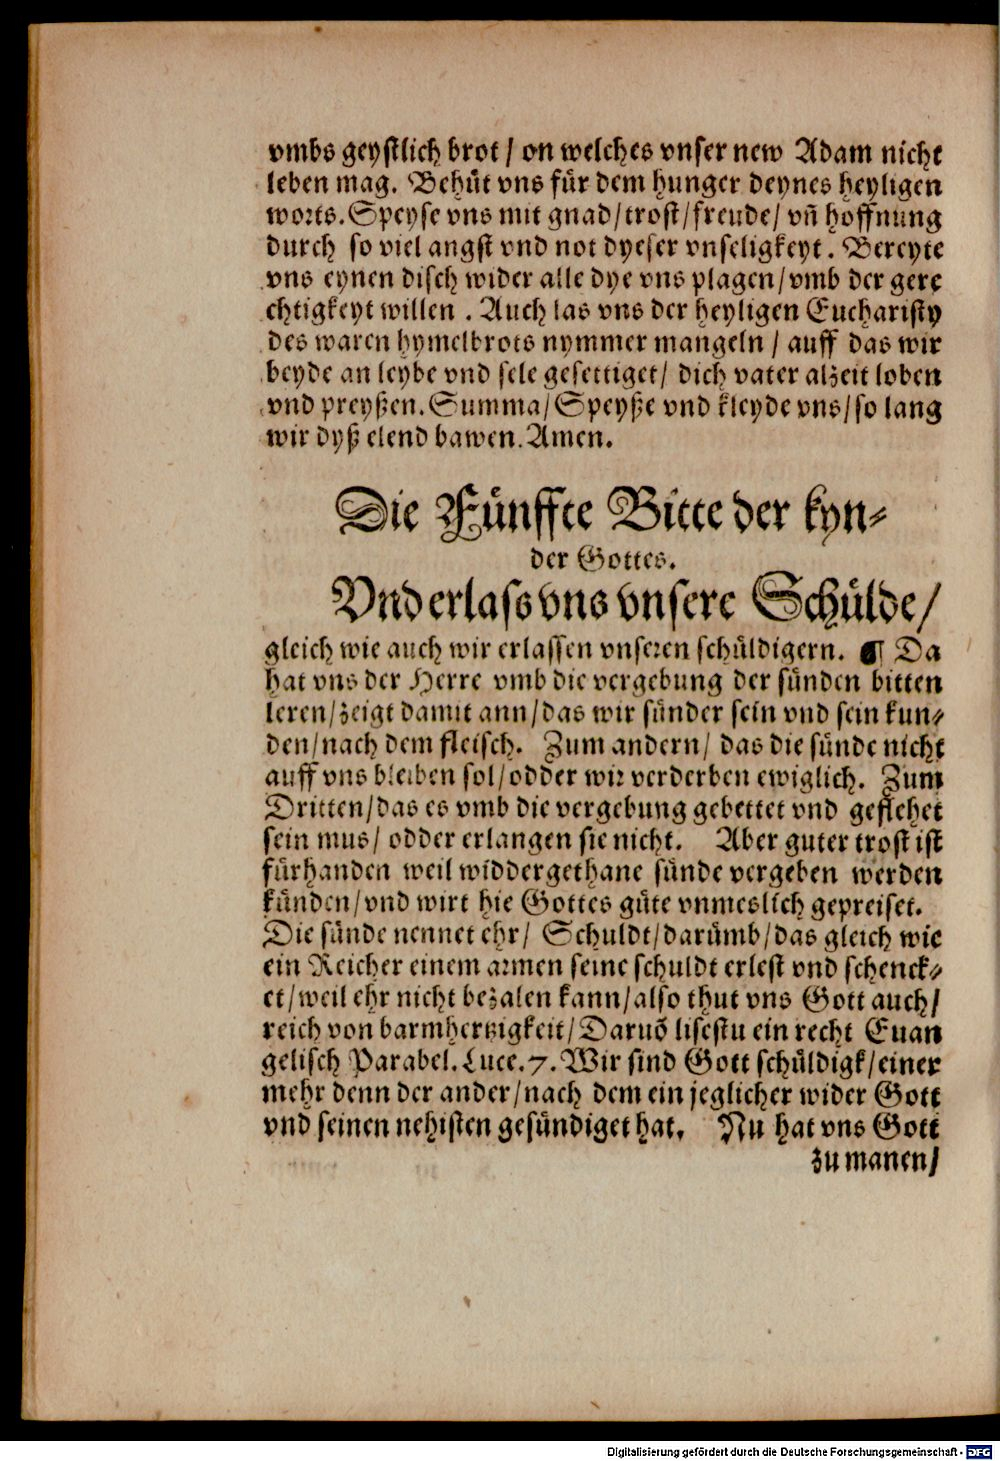 vmbs geystlich brot / on welches vnser new Adam nicht
leben mag. Behüt vns für dem hunger deynes heyligen
worts. Speyse vns mit gnad/trost/freude/ vñ hoffnung
durch so viel angst vnd not dyeser vnseligkeyt. Bereyte
vns eynen disch wider alle dye vns plagen/vmb der gere
chtigkeyt willen . Auch las vns der heyligen Eucharisty
des waren hymelbrots nymmer mangeln / auff das wir
beyde an leybe vnd sele gesettiget/ dich vater alzeit loben
vnd preyßen. Summa/ Speyße vnd kleyde vns/so lang
wir dyß elend bawen. Amen.
Die Fünffte Bitte der kyn-
der Gottes.
Vnd erlass vns vnsere Schülde/
gleich wie auch wir erlassen vnseren schüldigern. ¶ Da
hat vns der Herre vmb die vergebung der sünden bitten
leren/zeigt damit ann/das wir sünder sein vnd sein kun-
den/nach dem fleisch. Zum andern/ das die sünde nicht
auff vns bleiben sol/odder wir verderben ewiglich. Zum
Dritten/das es vmb die vergebung gebettet vnd geflehet
sein mus/ odder erlangen sie nicht. Aber guter trost ist
fürhanden weil widdergethane sünde vergeben werden
künden/vnd wirt hie Gottes güte vnmeslich gepreiset.
Die sünde nennet ehr/ Schuldt/darümb/das gleich wie
ein Reicher einem armen seine schuldt erlest vnd schenck-
et/weil ehr nicht bezalen kann/also thut vns Gott auch/
reich von barmhertzigkeit/Daruō lisestu ein recht Euan
gelisch Parabel. Luce. 7. Wir sind Gott schüldigk/einer
mehr denn der ander/nach dem ein jeglicher wider Gott
vnd seinen nehisten gesündiget hat. Nu hat vns Gott
zu manen/
Digitalisierung gefördert durch die Deutsche Forschungsgemeinschaft - DFG